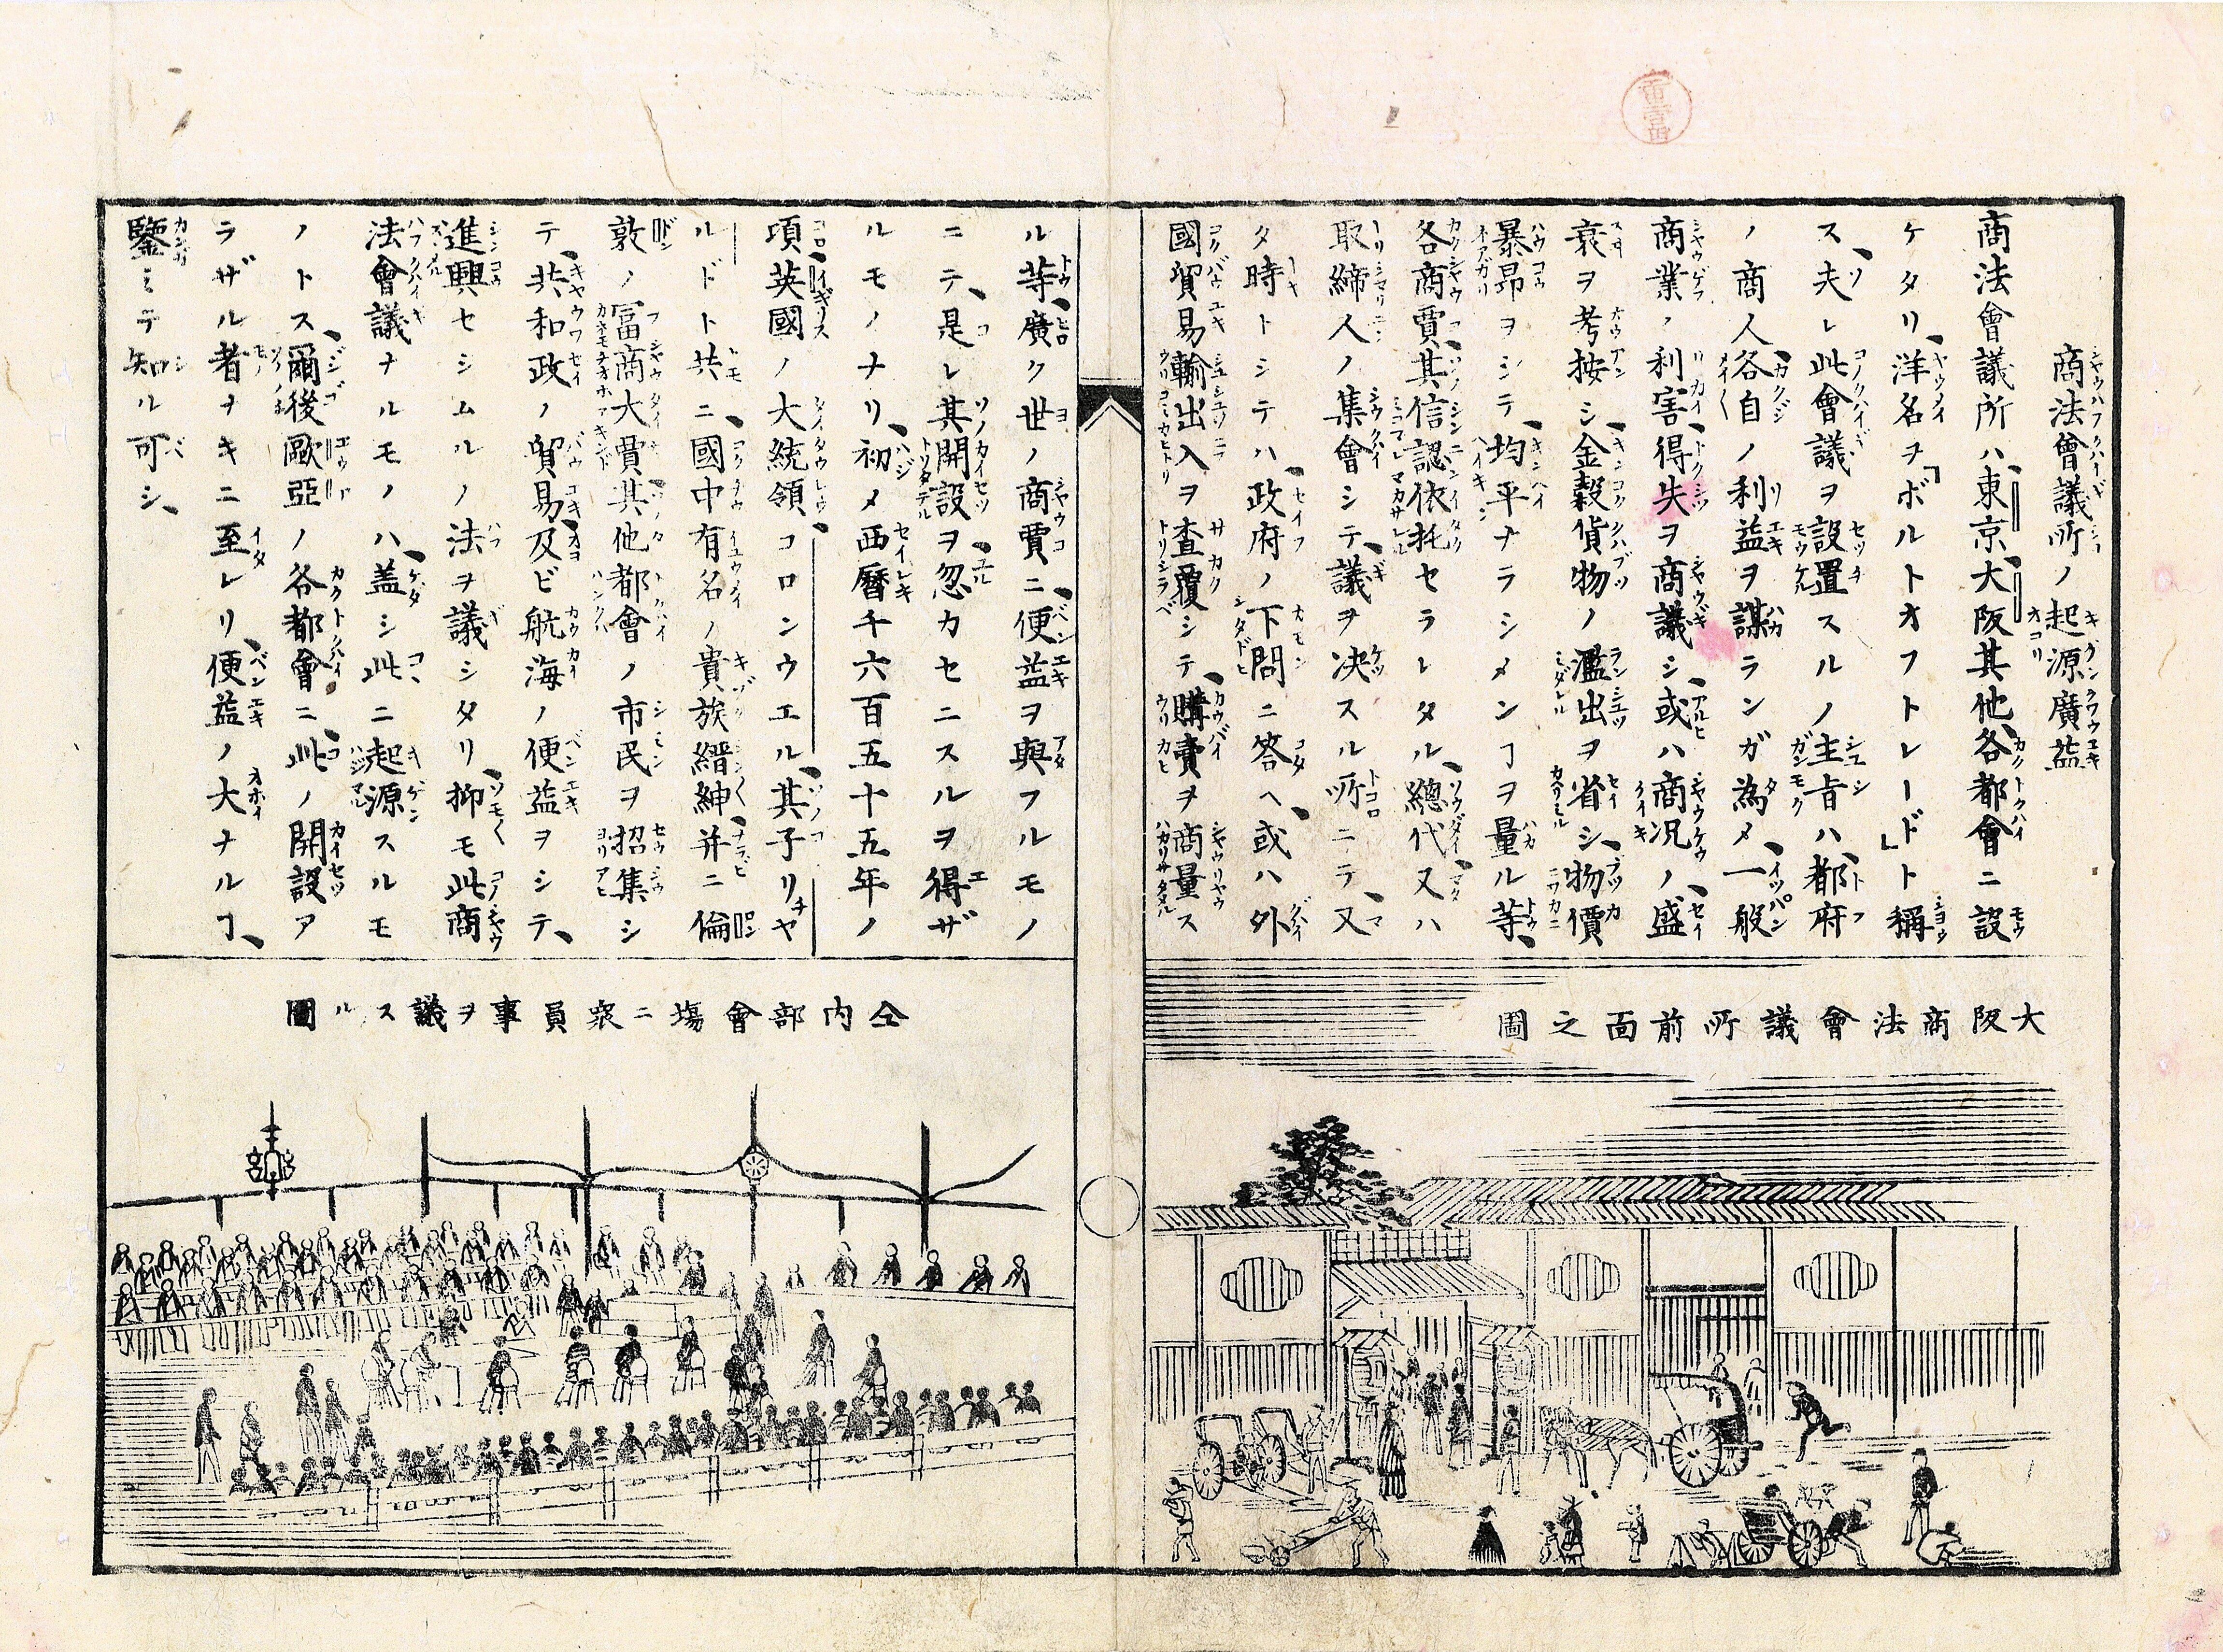 商法會議所ノ起源廣益
商法會議所ハ、東京、大阪其他、各都會ニ設
ケタリ、洋名ヲ「ボルトオフトレード」ト稱
ス、夫レ此會議ヲ設置スルノ主旨ハ、都府
ノ商人、各自ノ利益ヲ謀ランガ為メ、一般
商業ノ利害、得失ヲ商議シ、或ハ商况ノ盛
衰ヲ考按シ、金穀貨物ノ濫出ヲ省シ、物價
暴昂ヲシテ、均平ナラシメンヿヲ量ル等、
各商賈、其信認依托セラレタル、總代又ハ
取締人ノ集會シテ、議ヲ决スル所ニテ、又
タ時トシテハ、政府ノ下問ニ答ヘ、或ハ外
國貿易輸出入ヲ査覆シテ、購賣ヲ商量ス
ル等、廣ク世ノ商賈ニ、便益ヲ與フルモノ
ニテ、是レ其開設ヲ、忽カセニスルヲ得ザ
ルモノナリ、初メ西曆千六百五十五年ノ
項、英國ノ大統領、コロンウエル、其子リチヤ
ルドト共ニ、國中有名ノ貴族縉紳、并ニ倫
敦ノ冨商大賈、其他都會ノ市民ヲ招集シ
テ、共和政ノ貿易、及ビ航海ノ便益ヲシテ、
進興セシムルノ法ヲ議シタリ、抑モ此商
法會議ナルモノハ、盖シ此ニ起源スルモ
ノトス、爾後歐亞ノ各都會ニ、此ノ開設ア
ラザル者ナキニ至レリ、便益ノ大ナルヿ、
鑒ミテ知ル可シ、
大阪商法會議所前面之圖
仝内部會塲ニ衆員事ヲ議スル圖